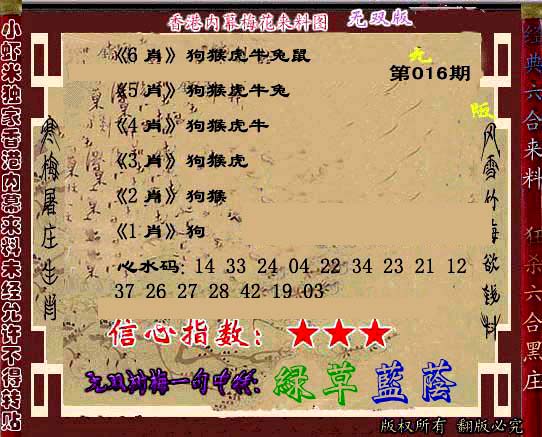 香港内幕梅花来料图 无双版
《6 肖》狗猴虎牛兔鼠
无
第016期
《5 肖》狗猴虎牛兔
版
《4 肖》狗猴虎牛
《3 肖》狗猴虎
《2 肖》狗猴
《1 肖》狗
心水码: 14 33 24 04 22 34 23 21 12
37 26 27 28 42 19 03
信心指数: ★★★
一句中特: 綠草藍蔭
小虾米独家香港内幕来料未经允许不得转贴
寒梅屠庄生肖
风雪竹梅欲钱料
经典六合来料 狂杀六合黑庄
版权所有 翻版必究